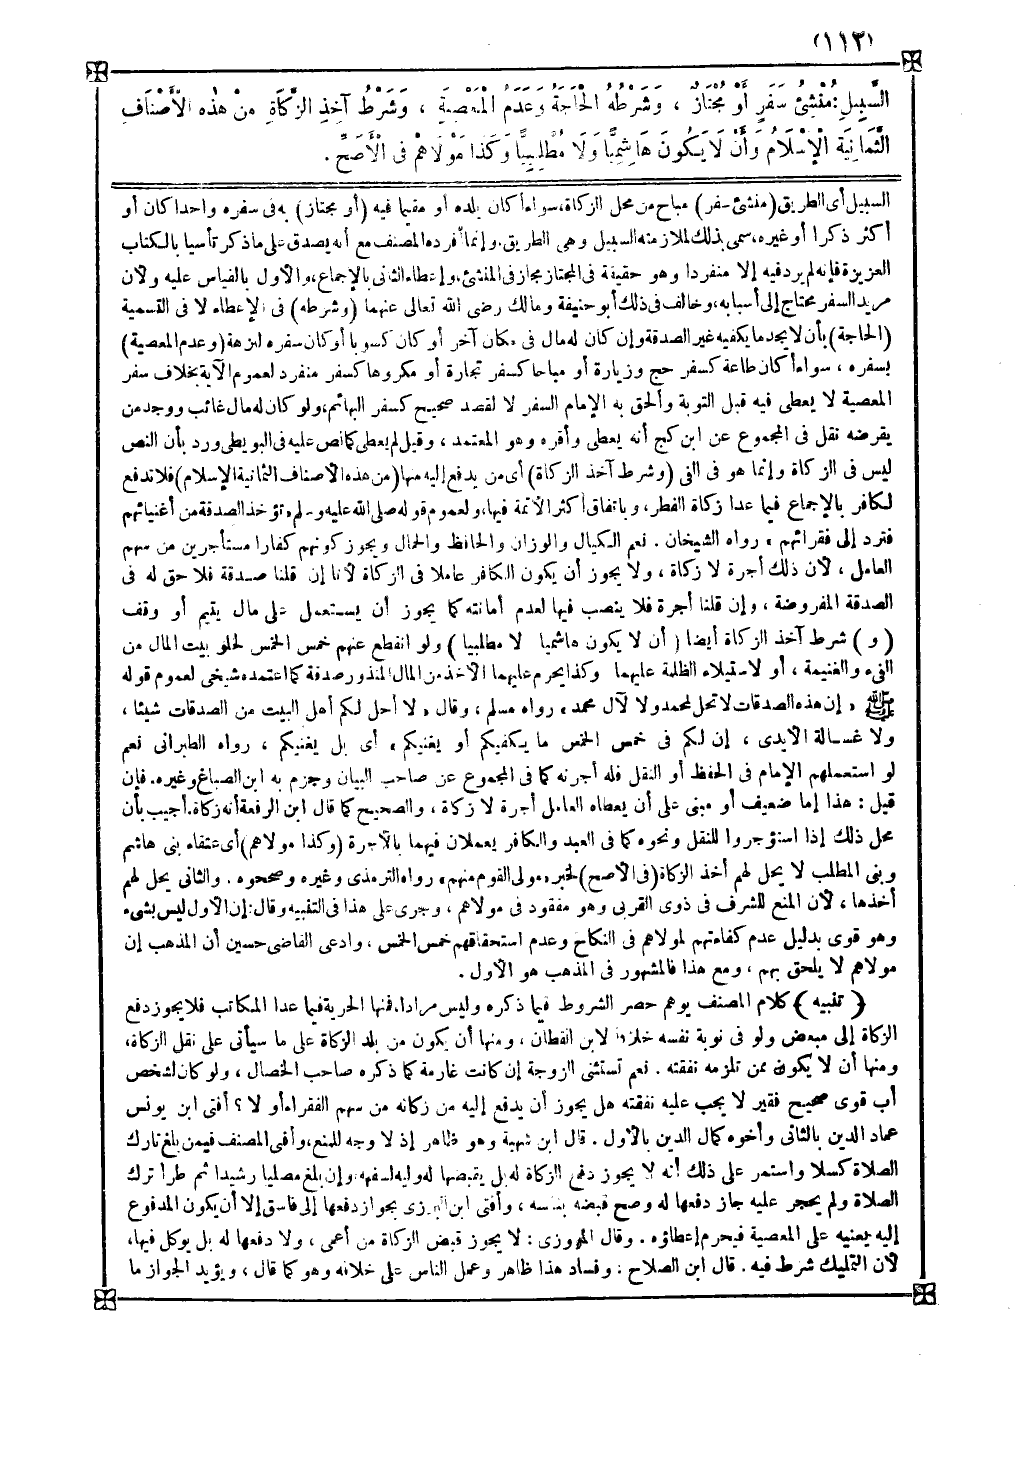 (١١٢)
السَّبِيلِ: مُنْشِئُ سَفَرٍ أَوْ مُجْتَازٌ ، وَشَرْطُهُ الْحَاجَةُ وَعَدَمُ الْمَعْصِيَةِ ، وَشَرْطُ آخِذِ الزَّكَاةِ مِنْ هٰذِهِ الْأَصْنَافِ
الثَّمَانِيَةِ الْإِسْلَامُ وَأَنْ لَا يَكُونَ هَاشِمِيًّا وَلَا مُطَّلِبِيًّا وَكَذَا مَوْلَاهُمْ فِى الْأَصَحِّ .
السبيل أى الطريق (منشئ سفر) مباح من محل الزكاة، سواء أكان بلده أو مقيما فيه (أو مجتاز) به فى سفره واحدا كان أو
أكثر ذكرا أو غيره، سمى بذلك لملازمته السبيل وهى الطريق. وإنما أفرده المصنف مع أنه يصدق على ما ذكر تأسيا بالكتاب
العزيز فإنه لم يرد فيه إلا منفردا وهو حقيقة فى المجتاز مجاز فى المنشئ، وإعطاء الثانى بالإجماع، والأول بالقياس عليه ولأن
مريد السفر محتاج إلى أسبابه، وخالف فى ذلك أبو حنيفة ومالك رضى الله تعالى عنهما (وشرطه) فى الإعطاء لا فى التسمية
(الحاجة) بأن لا يجد ما يكفيه غير الصدقة وإن كان له مال فى مكان آخر أو كان كسوبا أو كان سفره لنزهة (وعدم المعصية)
بسفره ، سواء أكان طاعة كسفر حج وزيارة أو مباحا كسفر تجارة أو مكروها كسفر منفرد لعموم الآية بخلاف سفر
المعصية لا يعطى فيه قبل التوبة وألحق به الإمام السفر لا لقصد صحيح كسفر الهائم، ولو كان له مال غائب ووجد من
يقرضه نقل فى المجموع عن ابن كج أنه يعطى وأقره وهو المعتمد ، وقيل لم يعطى كما نص عليه فى البويطى ورد بأن النص
ليس فى الزكاة وإنما هو فى الفئ (وشرط آخذ الزكاة) أى من يدفع إليه منها (من هذه الأصناف الثمانية الإسلام) فلا تدفع
لكافر بالإجماع فيما عدا زكاة الفطر، وباتفاق أكثر الأئمة فيها، ولعموم قوله صلى الله عليه وسلم «تؤخذ الصدقة من أغنيائهم
فترد إلى فقرائهم » رواه الشيخان . نعم الكيال والوزان والحافظ والحمال ويجوز كونهم كفارا مستأجرين من سهم
العامل ، لأن ذلك أجرة لا زكاة ، ولا يجوز أن يكون الكافر عاملا فى الزكاة لأنا إن قلنا صدقة فلا حق له فى
الصدقة المفروضة ، وإن قلنا أجرة فلا ينصب فيها لعدم أمانته كما يجوز أن يستعمل على مال يتيم أو وقف
( و ) شرط آخذ الزكاة أيضا ( أن لا يكون هاشميا لا مطلبيا ) ولو انقطع عنهم خمس الخمس لخلو بيت المال من
الفىء والغنيمة ، أو لاستيلاء الظلمة عليهما وكذا يحرم عليهما الأخذ من المال المنذور صدقة كما اعتمده شيخى لعموم قوله
ﷺ « إن هذه الصدقات لا تحل لمحمد ولا لآل محمد » رواه مسلم ، وقال « لا أحل لكم أهل البيت من الصدقات شيئا ،
ولا غسالة الأيدى ، إن لكم فى خمس الخمس ما يكفيكم أو يغنيكم » أى بل يغنيكم ، رواه الطبرانى نعم
لو استعملهم الإمام فى الحفظ أو النقل فله أجرته كما فى المجموع عن صاحب البيان وجزم به ابن الصباغ وغيره. فإن
قيل : هذا إما ضعيف أو مبنى على أن يعطاه العامل أجرة لا زكاة ، والصحيح كما قال ابن الرفعة أنه زكاة. أجيب بأن
محل ذلك إذا استؤجروا للنقل ونحوه كما فى العبد والكافر يعملان فيهما بالأجرة (وكذا مولاهم) أى عتقاء بنى هاشم
وبنى المطلب لا يحل لهم أخذ الزكاة (فى الأصح) لخبر «مولى القوم منهم» رواه الترمذى وغيره وصححوه . والثانى يحل لهم
أخذها ، لأن المنع للشرف فى ذوى القربى وهو مفقود فى مولاهم ، وجرى على هذا فى التنبيه وقال: إن الأول ليس بشىء
وهو قوى بدليل عدم كفاءتهم لمولاهم فى النكاح وعدم استحقاقهم خمس الخمس ، وادعى القاضى حسين أن المذهب إن
مولاهم لا يلحق بهم ، ومع هذا فالمشهور فى المذهب هو الأول .
﴿ تنبيه ﴾ كلام المصنف يوهم حصر الشروط فيما ذكره وليس مرادا. فمنها الحرية فيما عدا المكاتب فلا يجوز دفع
الزكاة إلى مبعض ولو فى نوبة نفسه خلافا لابن القطان ، ومنها أن يكون من بلد الزكاة على ما سيأتى على نقل الزكاة،
ومنها أن لا يكون ممن تلزمه نفقته . نعم تستثنى الزوجة إن كانت غارمة كما ذكره صاحب الخصال ، ولو كان لشخص
أب قوى صحيح فقير لا يجب عليه نفقته هل يجوز أن يدفع إليه من زكاته من سهم الفقراء أو لا ؟ أفتى ابن يونس
عماد الدين بالثانى وأخوه كمال الدين بالأول . قال ابن شهبة وهو ظاهر إذ لا وجه للمنع، وأفتى المصنف فيمن بلغ تارك
الصلاة كسلا واستمر على ذلك أنه لا يجوز دفع الزكاة له بل يقبضها له وليه لسفهه وإن بلغ مصليا رشيدا ثم طرأ ترك
الصلاة ولم يحجر عليه جاز دفعها له وصح قبضه بنفسه ، وأفتى ابن البزرى بجواز دفعها إلى فاسق إلا أن يكون المدفوع
إليه يعينه على المعصية فيحرم إعطاؤه . وقال الموزى : لا يجوز قبض الزكاة من أعمى ، ولا دفعها له بل يوكل فيها،
لأن التمليك شرط فيه . قال ابن الصلاح : وفساد هذا ظاهر وعمل الناس على خلافه وهو كما قال ، ويؤيد الجواز ما